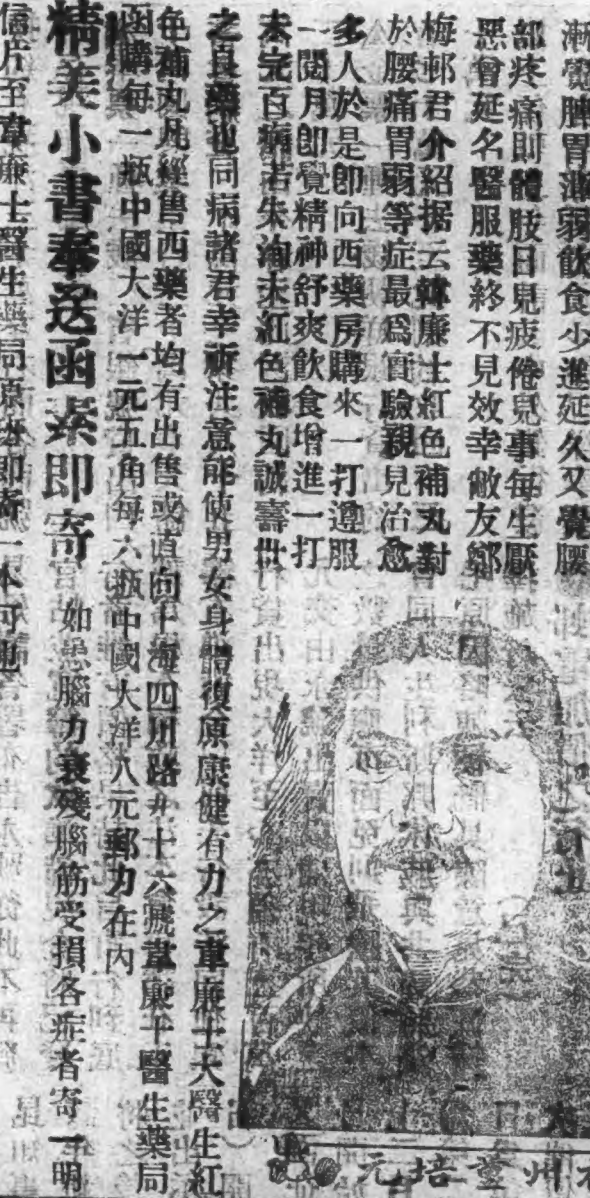 漸覺脾胃漸弱飲食少進延久又覺腰
部疼痛則體肢日見疲倦見事每生厭
惡曾延名醫服藥終不見效幸敝友鄭
梅邨君介紹据云韓廉士紅色補丸對
於腰痛胃弱等症最爲實驗親見治愈
多人於是卽向西藥房購來一打遵服
一閱月卽覺精神舒爽飲食增進一打
未完百病若失洵紅色補丸誠壽世
之良藥也同病諸君幸祈注意能使男女身體復原康健有力之韋廉士大醫生紅
色補丸凡經售西藥者均有出售或直向上海四川路九十六號韋廉士醫生藥局
函購每一瓶中國大洋一元五角每六瓶中國大洋八元郵力在內
精美小書奉送函索卽寄 如患腦力衰殘腦筋受損各症者寄一明
信片至韋廉士醫生藥局原班卽寄一本可也
州董培元